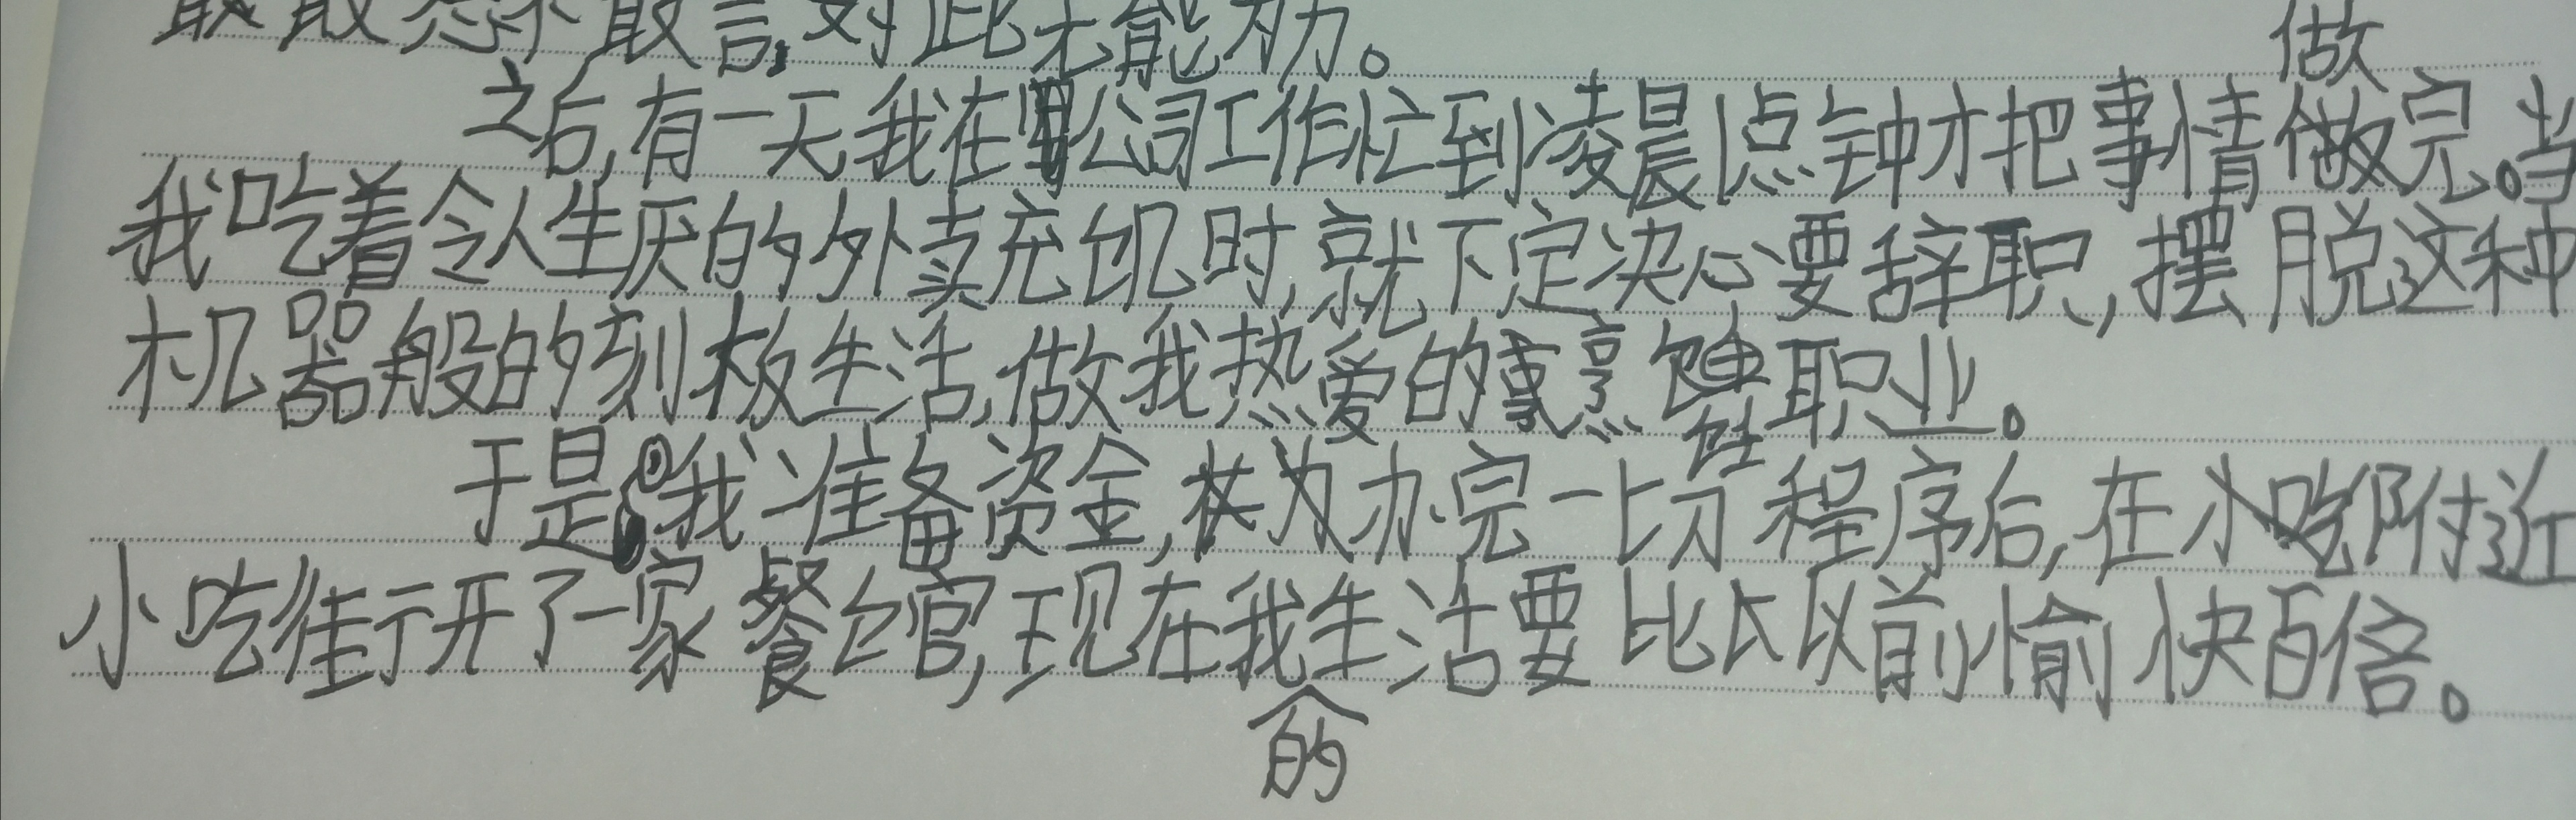 敢怒不敢言,对此无能为力。
之后,有一天,我在公司工作忙到凌晨1点钟才把事情做完。当
我吃着令人生厌的外卖充饥时,就下定决心要辞职,摆脱这种
机器般的刻板生活,做我热爱的烹饪职业。
于是我准备资金,办完一切程序后,在附近
小吃街开了一家餐馆,现在我的生活要比以前愉快百倍。